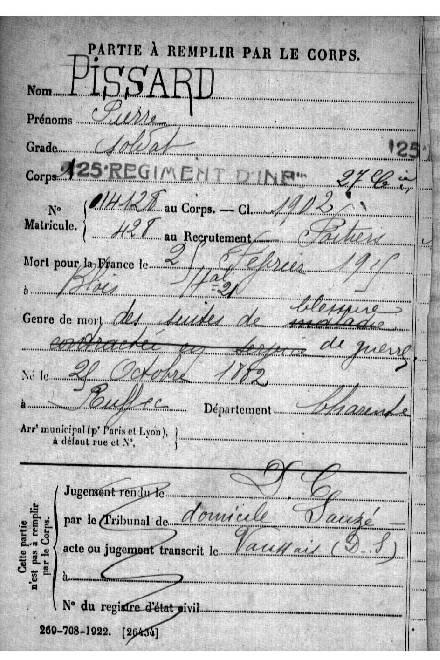 PARTIE À REMPLIR PAR LE CORPS.
Nom PISSARD
Prénoms Pierre
Grade Soldat
125
Corps 125e REGIMENT D'INFie 27 Cie
N° Matricule. { 014128 au Corps. — Cl. 1902
428 au Recrutement Poitiers
Mort pour la France le 2 Février 1915
à Blois
Genre de mort des suites de maladie blessure
contractée en service de guerre
Né le 25 Octobre 1882
à Ruffec Département Charente
Arrt municipal (pr Paris et Lyon), à défaut rue et N°.
Cette partie n'est pas à remplir par le Corps.
D. C.
Jugement rendu le
par le Tribunal de domicile Sauzé
acte ou jugement transcrit le Vaussais (D-S)
à
N° du registre d'état civil
260-708-1922. [26434]